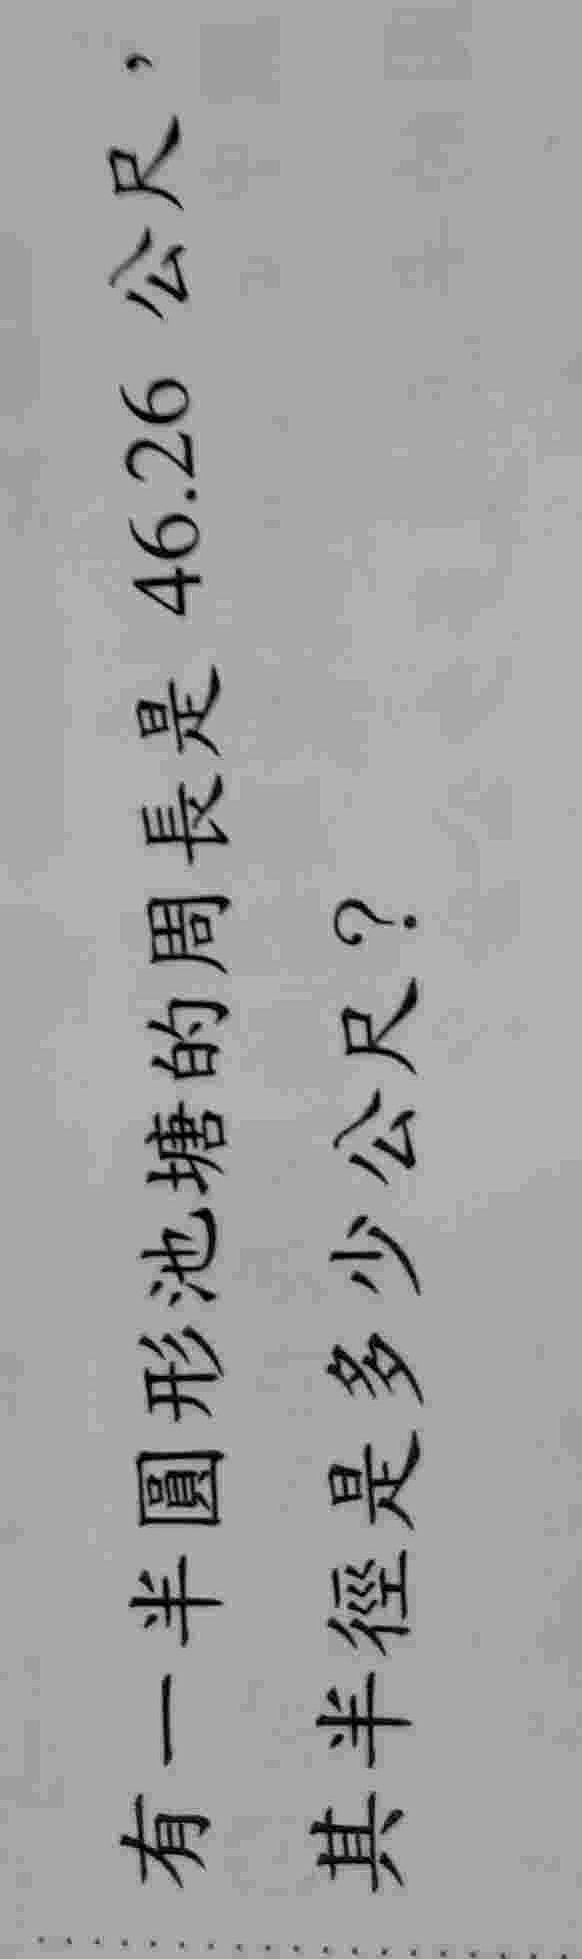 有一半圓形池塘的周長是 46.26 公尺，
其半徑是多少公尺？